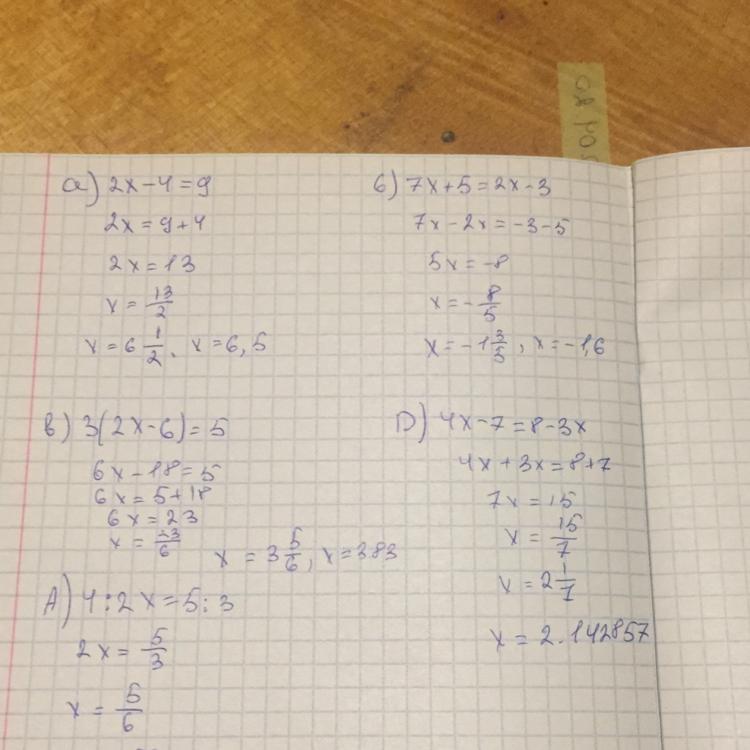 а) 2x-4=9
2x=9+4
2x=13
x=13/2
x=6 1/2, x=6,5
б) 7x+5=2x-3
7x-2x=-3-5
5x=-8
x=-8/5
x=-1 3/5, x=-1,6
в) 3(2x-6)=5
6x-18=5
6x=5+18
6x=23
x=23/6
x=3 5/6, x=3.83
D) 4x-7=8-3x
4x+3x=8+7
7x=15
x=15/7
x=2 1/7
x=2.142857
A) 4:2x=5:3
2x=5/3
x=5/6